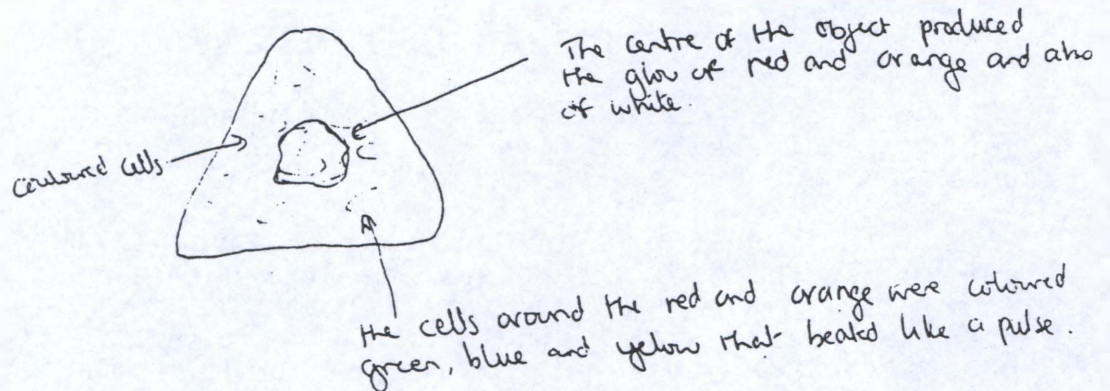 The centre of the object produced
the glow of red and orange and also
of white.
coloured cells
the cells around the red and orange were coloured
green, blue and yellow that beated like a pulse.